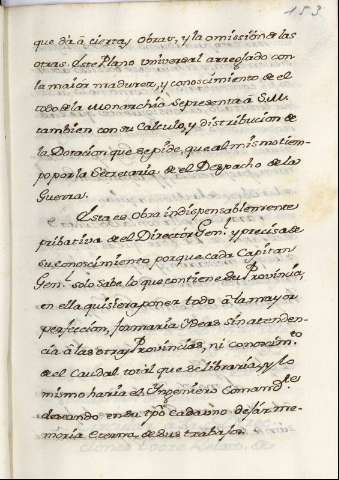 153
que dà à ciertas obras, y la omission de las
otras. Este Plano universal arreglado con
la maior madurez, y conoscimiento de el
todo de la Monarchia se presenta à S.M.
tambien con su Calculo, y distribucion de
la Dotacion que se pide, que al mismo tiem-
po por la Secretaria de el Despacho de la
Guerra.
Esta es Obra indispensablemente
pribativa de el Director Gen.l y precisa de
su conoscimiento porque cada Capitan
Gen.l solo sabe lo que contiene su Provincia,
en ella quisiera poner todo à la mayor
perfeccion, formaria Ydeas sin atenden-
cia à las otras Provincias, ni conoscim.to
de el Caudal total que se libraria, y lo
mismo haria el Ingeniero Comand.te
deseando en su tpõ cada uno dejar me-
moria eterna de sus trabajos.